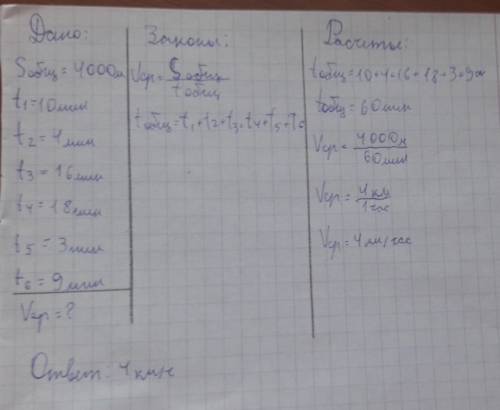 Дано:
Sобщ = 4000м
t1 = 10мин
t2 = 4мин
t3 = 16мин
t4 = 18мин
t5 = 3мин
t6 = 9мин
Vср = ?
Законы:
Vср = Sобщ / tобщ
tобщ = t1 + t2 + t3 + t4 + t5 + t6
Расчеты:
tобщ = 10+4+16+18+3+9
tобщ = 60мин
Vср = 4000м / 60мин
Vср = 4км / 1час
Vср = 4км/час
Ответ: 4км/ч